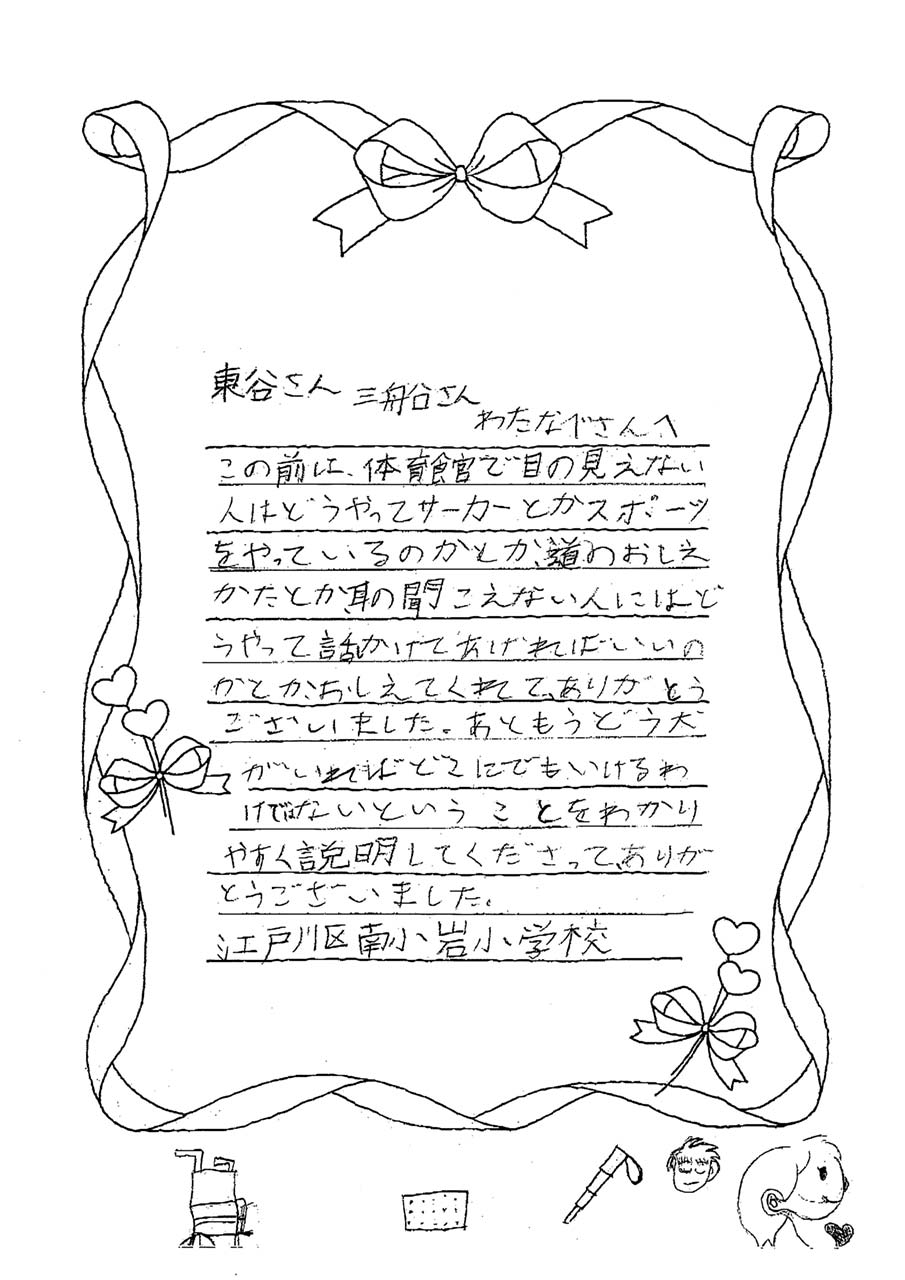 東谷さん 三舟谷さん
わたなべさんへ
この前は、体育館で目の見えない
人はどうやってサーカーとかスポーツ
をやっているのかとか、道のおしえ
かたとか耳の聞こえない人にはど
うやって話かけてあげればいいの
かとか、おしえてくれて、ありがとう
ございました。あともうどう犬
がいればどこにでもいけるわ
けではないということをわかり
やすく説明してくださって、ありが
とうございました。
江戸川区南小岩小学校